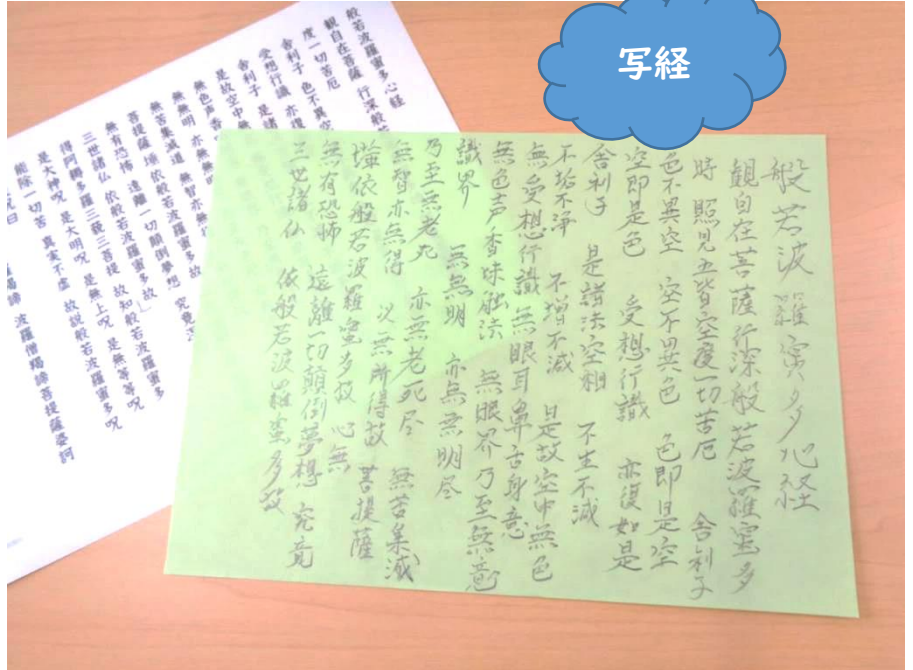 写経
般若波羅蜜多心経
観自在菩薩行深般若波羅蜜多
時 照見五皆空度一切苦厄 舎利子
色不異空 空不異色 色即是空
空即是色 受想行識 亦復如是
舎利子 是諸法空相 不生不滅
不垢不浄 不増不減 是故空中無色
無受想行識 無眼耳鼻舌身意
無色声香味触法 無眼界乃至無意
識界 無無明 亦無無明尽
乃至無老死 亦無老死尽 無苦集滅
無智亦無得 以無所得故 菩提薩
埵依般若波羅蜜多故 心無
無有恐怖 遠離一切顛倒夢想 究竟
三世諸仏 依般若波羅蜜多故
般若波羅蜜多心経
観自在菩薩 行深般若
度一切苦厄
舎利子 色不異空
受想行識 亦復
舎利子 是諸
是故空中無
無色声香
無無明 亦無無
無苦集滅道 無智亦無
菩提薩埵依般若波羅蜜多故
無有恐怖 遠離一切顛倒夢想 究竟
三世諸仏 依般若波羅蜜多故
得阿耨多羅三藐三菩提 故知般若波羅蜜多
是大神呪 是大明呪 是無上呪 是無等等呪
能除一切苦 真実不虚 故説般若波羅蜜多呪
羯諦 波羅僧羯諦菩提薩婆訶